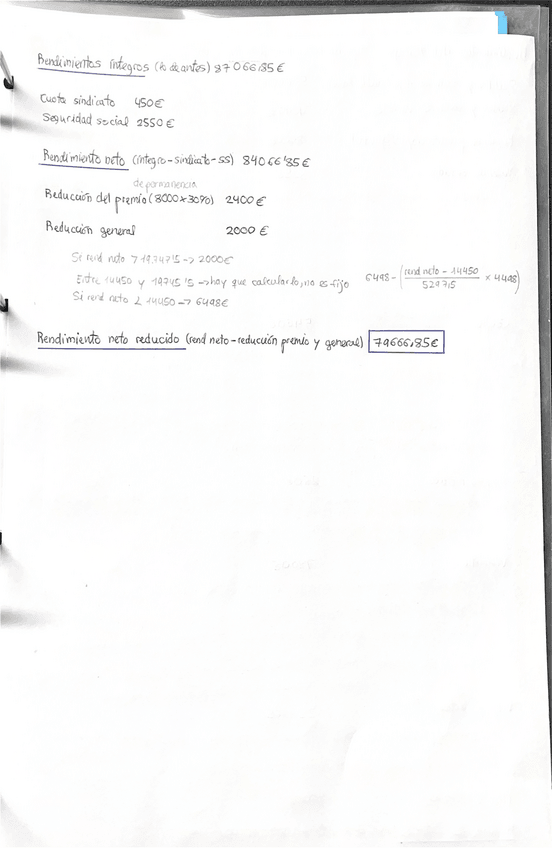 Rendimientos íntegros (lo de antes) 87066,85€
Cuota sindicato 450€
Seguridad social 2550€
Rendimiento neto (íntegro-sindicato-SS) 84066'85€
de permanencia
Reducción del premio (8000x30%) 2400€
Reducción general 2000€
Si rend neto > 19.747'5 -> 2000€
Entre 14450 y 19745'5 -> hay que calcularlo, no es fijo 6498 - (rend neto - 14450 / 5297,5 x 4498)
Si rend neto < 14450 -> 6498€
Rendimiento neto reducido (rend neto-reducción premio y general) 79666,85€